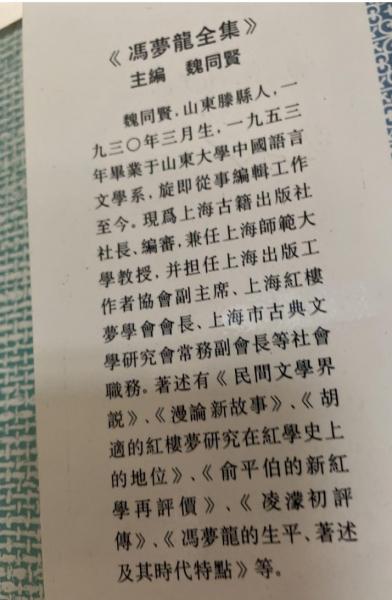 《馮夢龍全集》
主編 魏同賢
魏同賢，山東滕縣人，一
九三〇年三月生，一九五三
年畢業于山東大學中國語言
文學系，旋即從事編輯工作
至今。現爲上海古籍出版社
社長、編審，兼任上海師範大
學教授，并担任上海出版工
作者協會副主席、上海紅樓
夢學會會長、上海市古典文
學研究會常務副會長等社會
職務。著述有《民間文學界
説》、《漫論新故事》、《胡
適的紅樓夢研究在紅學史上
的地位》、《俞平伯的新紅
學再評價》、《凌濛初評
傳》、《馮夢龍的生平、著述
及其時代特點》等。